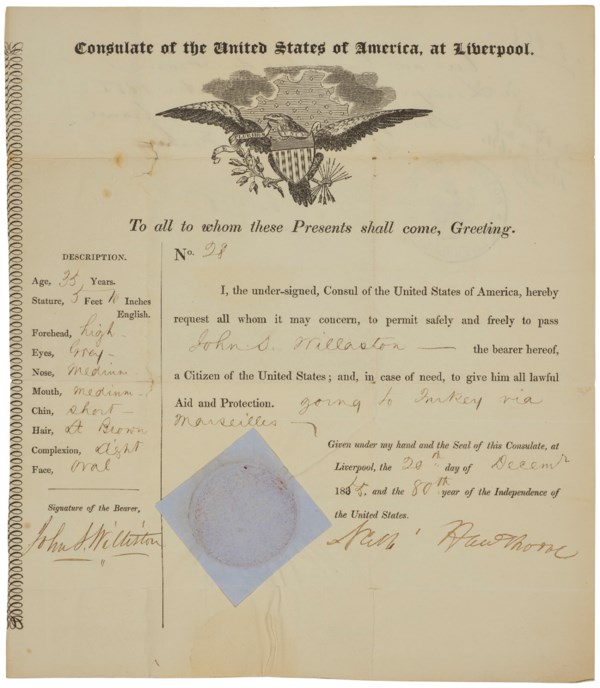 Consulate of the United States of America, at Liverpool.
E PLURIBUS UNUM
To all to whom these Presents shall come, Greeting.
DESCRIPTION.
Age, 35 Years.
Stature, 5 Feet 10 Inches
English.
Forehead, high
Eyes, Grey
Nose, Medium
Mouth, Medium
Chin, short
Hair, Lt Brown
Complexion, Light
Face, Oval
Signature of the Bearer,
John S. Williston
No. 28
I, the under-signed, Consul of the United States of America, hereby
request all whom it may concern, to permit safely and freely to pass
John S. Willaston — the bearer hereof,
a Citizen of the United States; and, in case of need, to give him all lawful
Aid and Protection. going to Turkey via
Marseilles —
Given under my hand and the Seal of this Consulate, at
Liverpool, the 20th day of Decemr
1855, and the 80th year of the Independence of
the United States.
Nathl Hawthorne